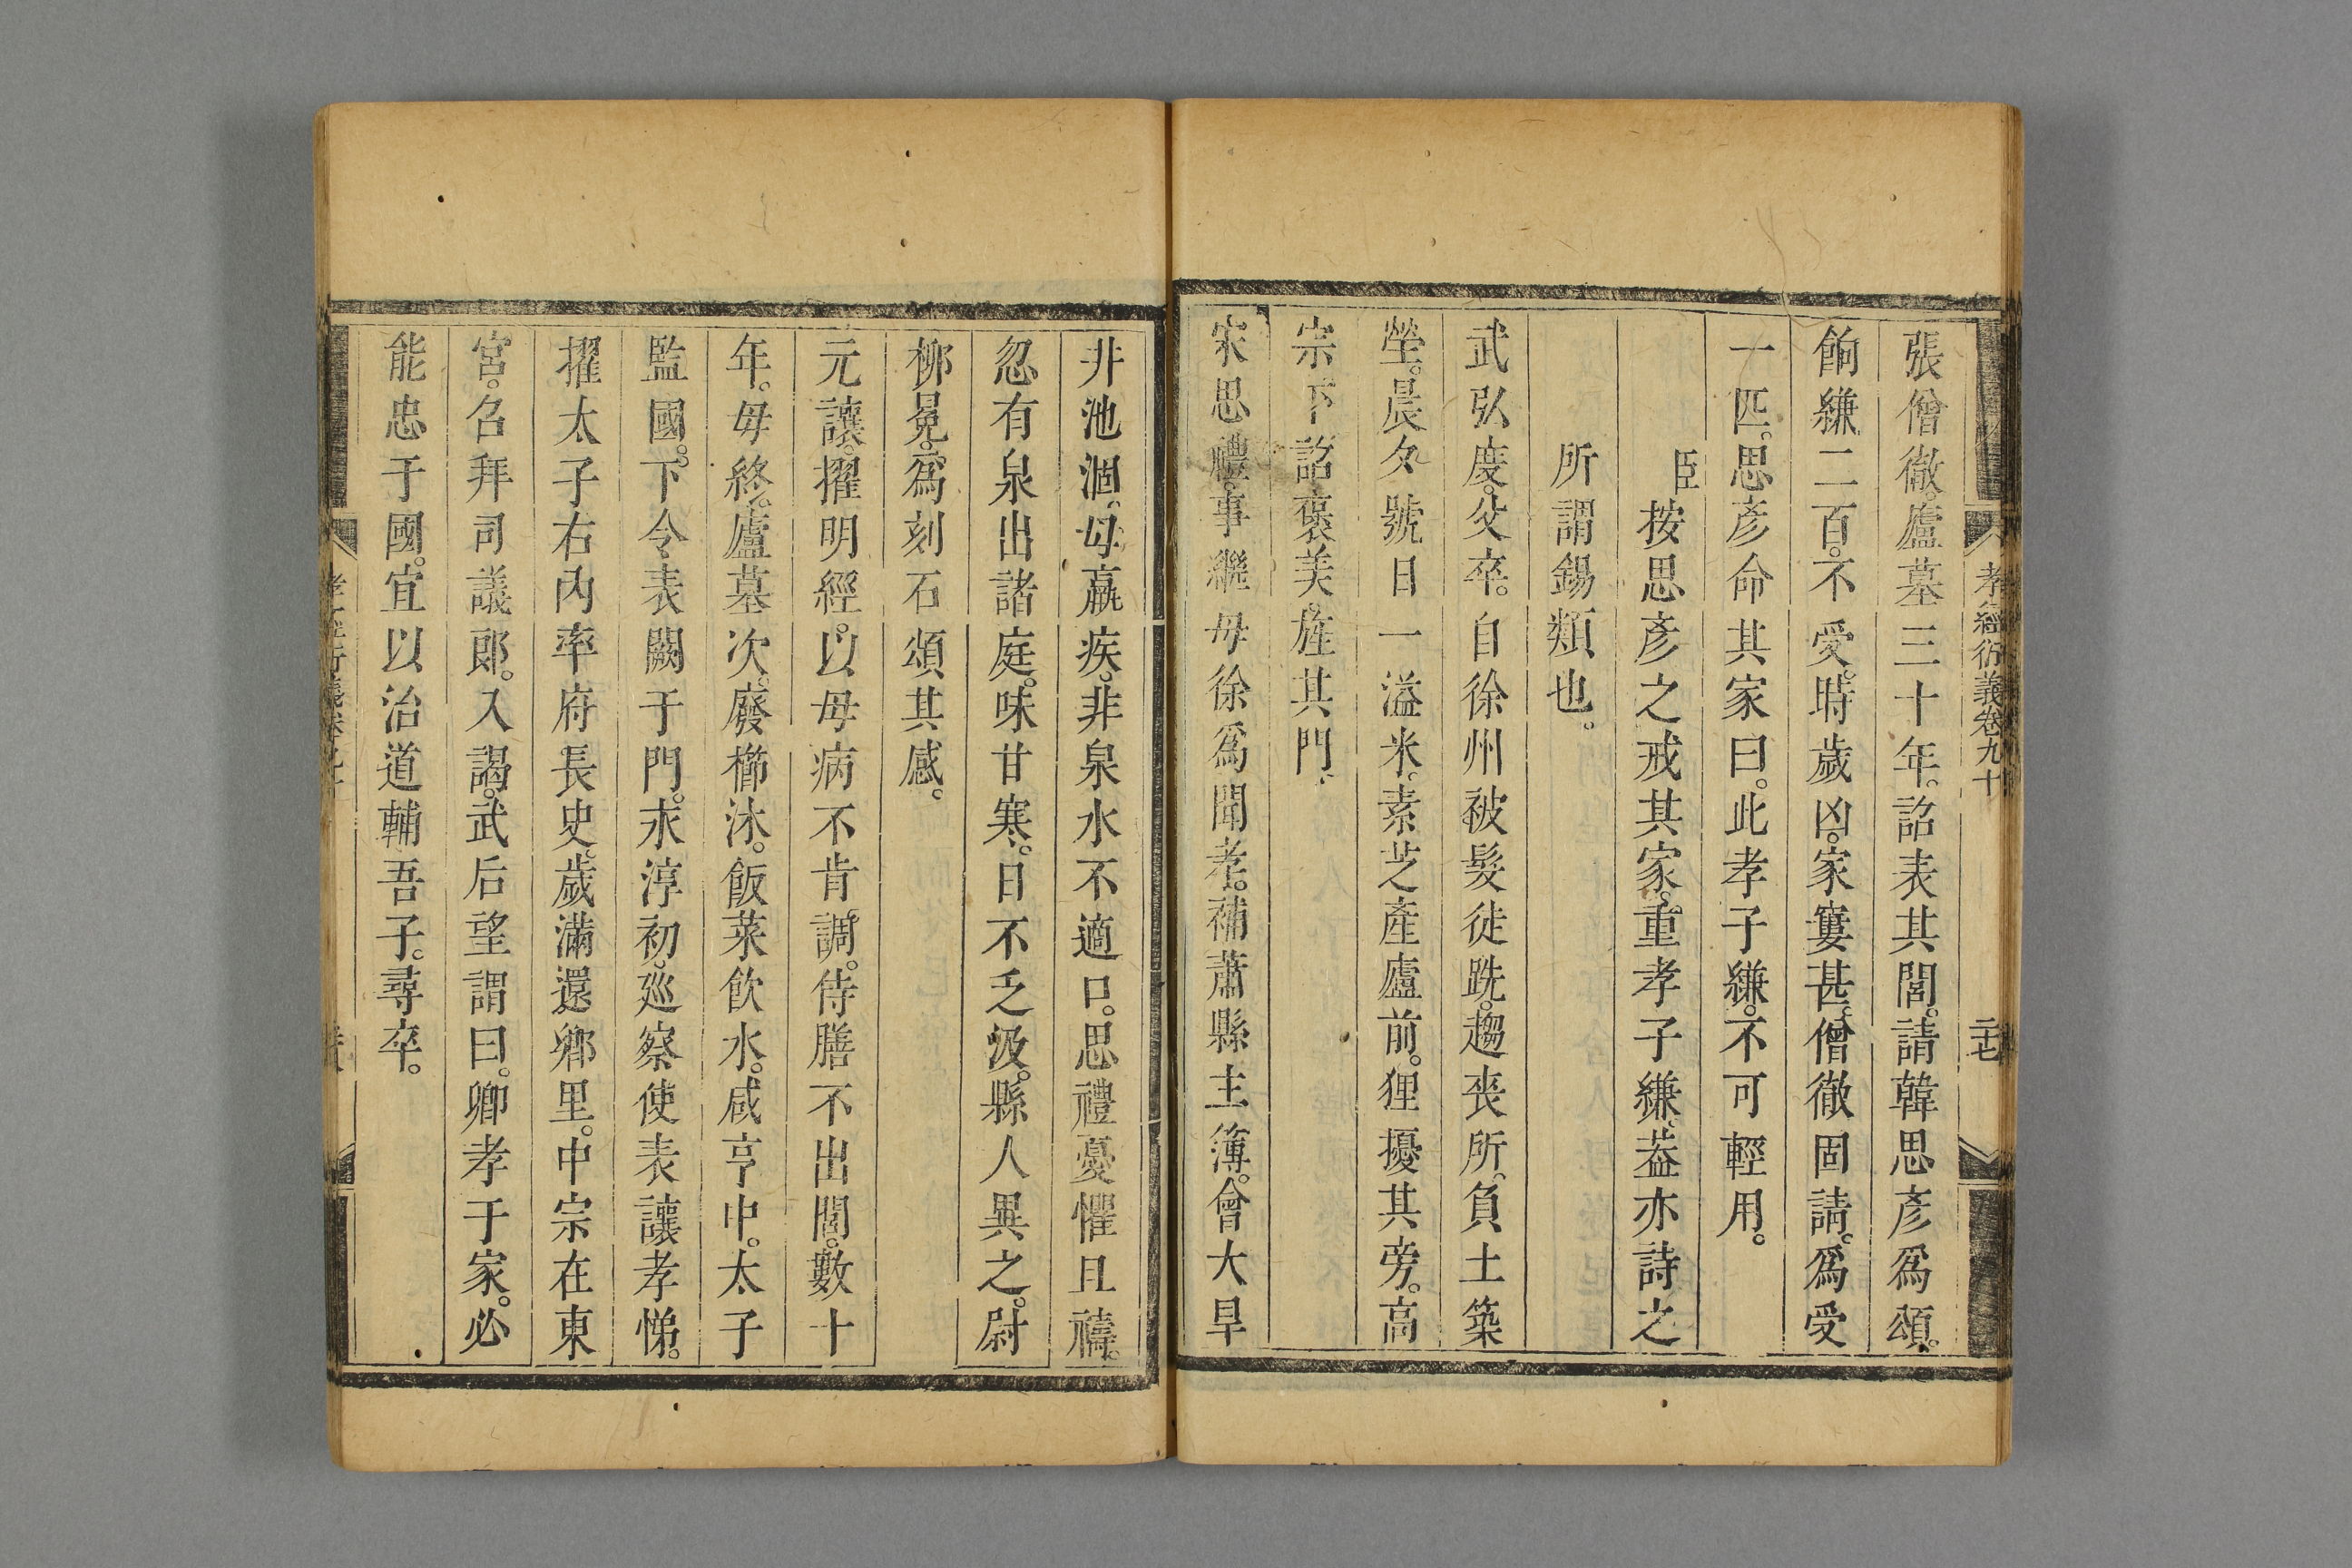 孝經衍義卷九十
二十七
張僧徹。廬墓三十年。詔表其閭。請韓思彥爲頌。
餉縑二百。不受。時歲凶。家窶甚。僧徹固請。爲受
一匹。思彥命其家曰。此孝子縑。不可輕用。
臣按思彥之戒其家。重孝子縑。葢亦詩之
所謂錫類也。
武弘度。父卒。自徐州被髮徒跣。趨喪所。負土築
塋。晨夕號日一溢米。素芝產廬前。狸擾其旁。高
宗下詔褒美。旌其門。
宋思禮。事繼母徐爲聞孝。補蕭縣主簿。會大旱
井池涸。母羸疾。非泉水不適口。思禮憂懼且禱。
忽有泉出諸庭。味甘寒。日不乏汲。縣人異之。尉
柳晃。爲刻石頌其感。
元讓。擢明經。以母病不肯調。侍膳不出閭。數十
年。母終。廬墓次。廢櫛沐。飯菜飲水。咸亨中。太子
監國。下令表闕于門。永淳初。巡察使表讓孝悌。
擢太子右內率府長史。歲滿還鄉里。中宗在東
宮。召拜司議郎。入謁。武后望謂曰。卿孝于家。必
能忠于國。宜以治道輔吾子。尋卒。